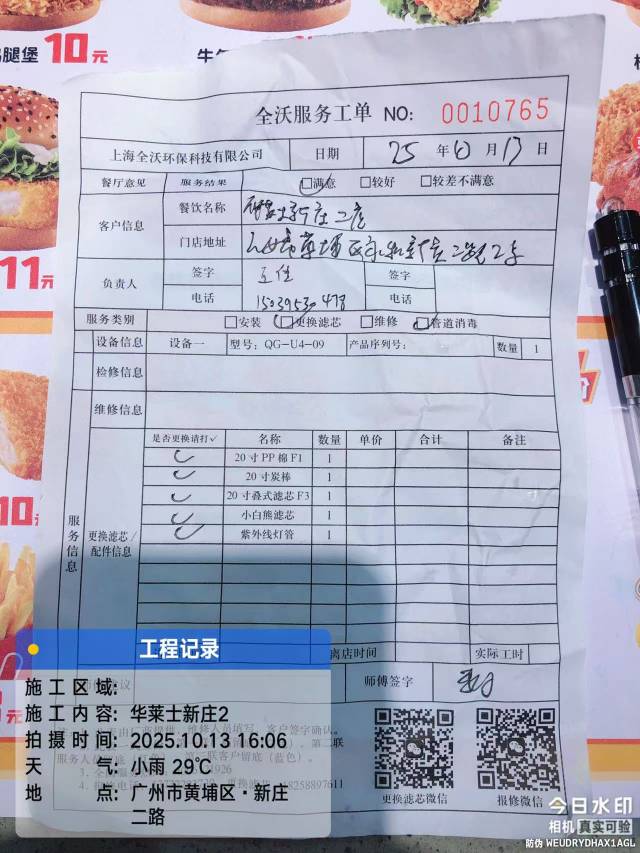 腿堡 10元
牛
11元
10
全沃服务工单 NO: 0010765
上海全沃环保科技有限公司 日期 25 年 10 月 13 日
餐厅意见 服务结果 ☑满意 □较好 □较差不满意
客户信息 餐饮名称 新庄二店
门店地址
负责人 签字 签字
电话 电话
服务类别 □安装 ☑更换滤芯 □维修 ☑管道消毒
设备信息 设备一 型号: QG-U4-09 产品序列号: 数量 1
检修信息
维修信息
服务信息
更换滤芯/配件信息
是否更换请打√ 名称 数量 单价 合计 备注
✓ 20寸PP棉F1 1
✓ 20寸炭棒 1
✓ 20寸叠式滤芯F3 1
✓ 小白熊滤芯 1
✓ 紫外线灯管 1
离店时间 实际工时
师傅签字
更换滤芯微信 报修微信
工程记录
施工区域:
施工内容: 华莱士新庄2
拍摄时间: 2025.10.13 16:06
天气: 小雨 29℃
地点: 广州市黄埔区·新庄
二路
今日水印
相机 真实可验
防伪 WEUDRYDHAX1AGL